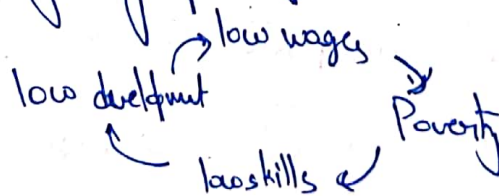 low wages
low develpmut
Poverty
lowskills